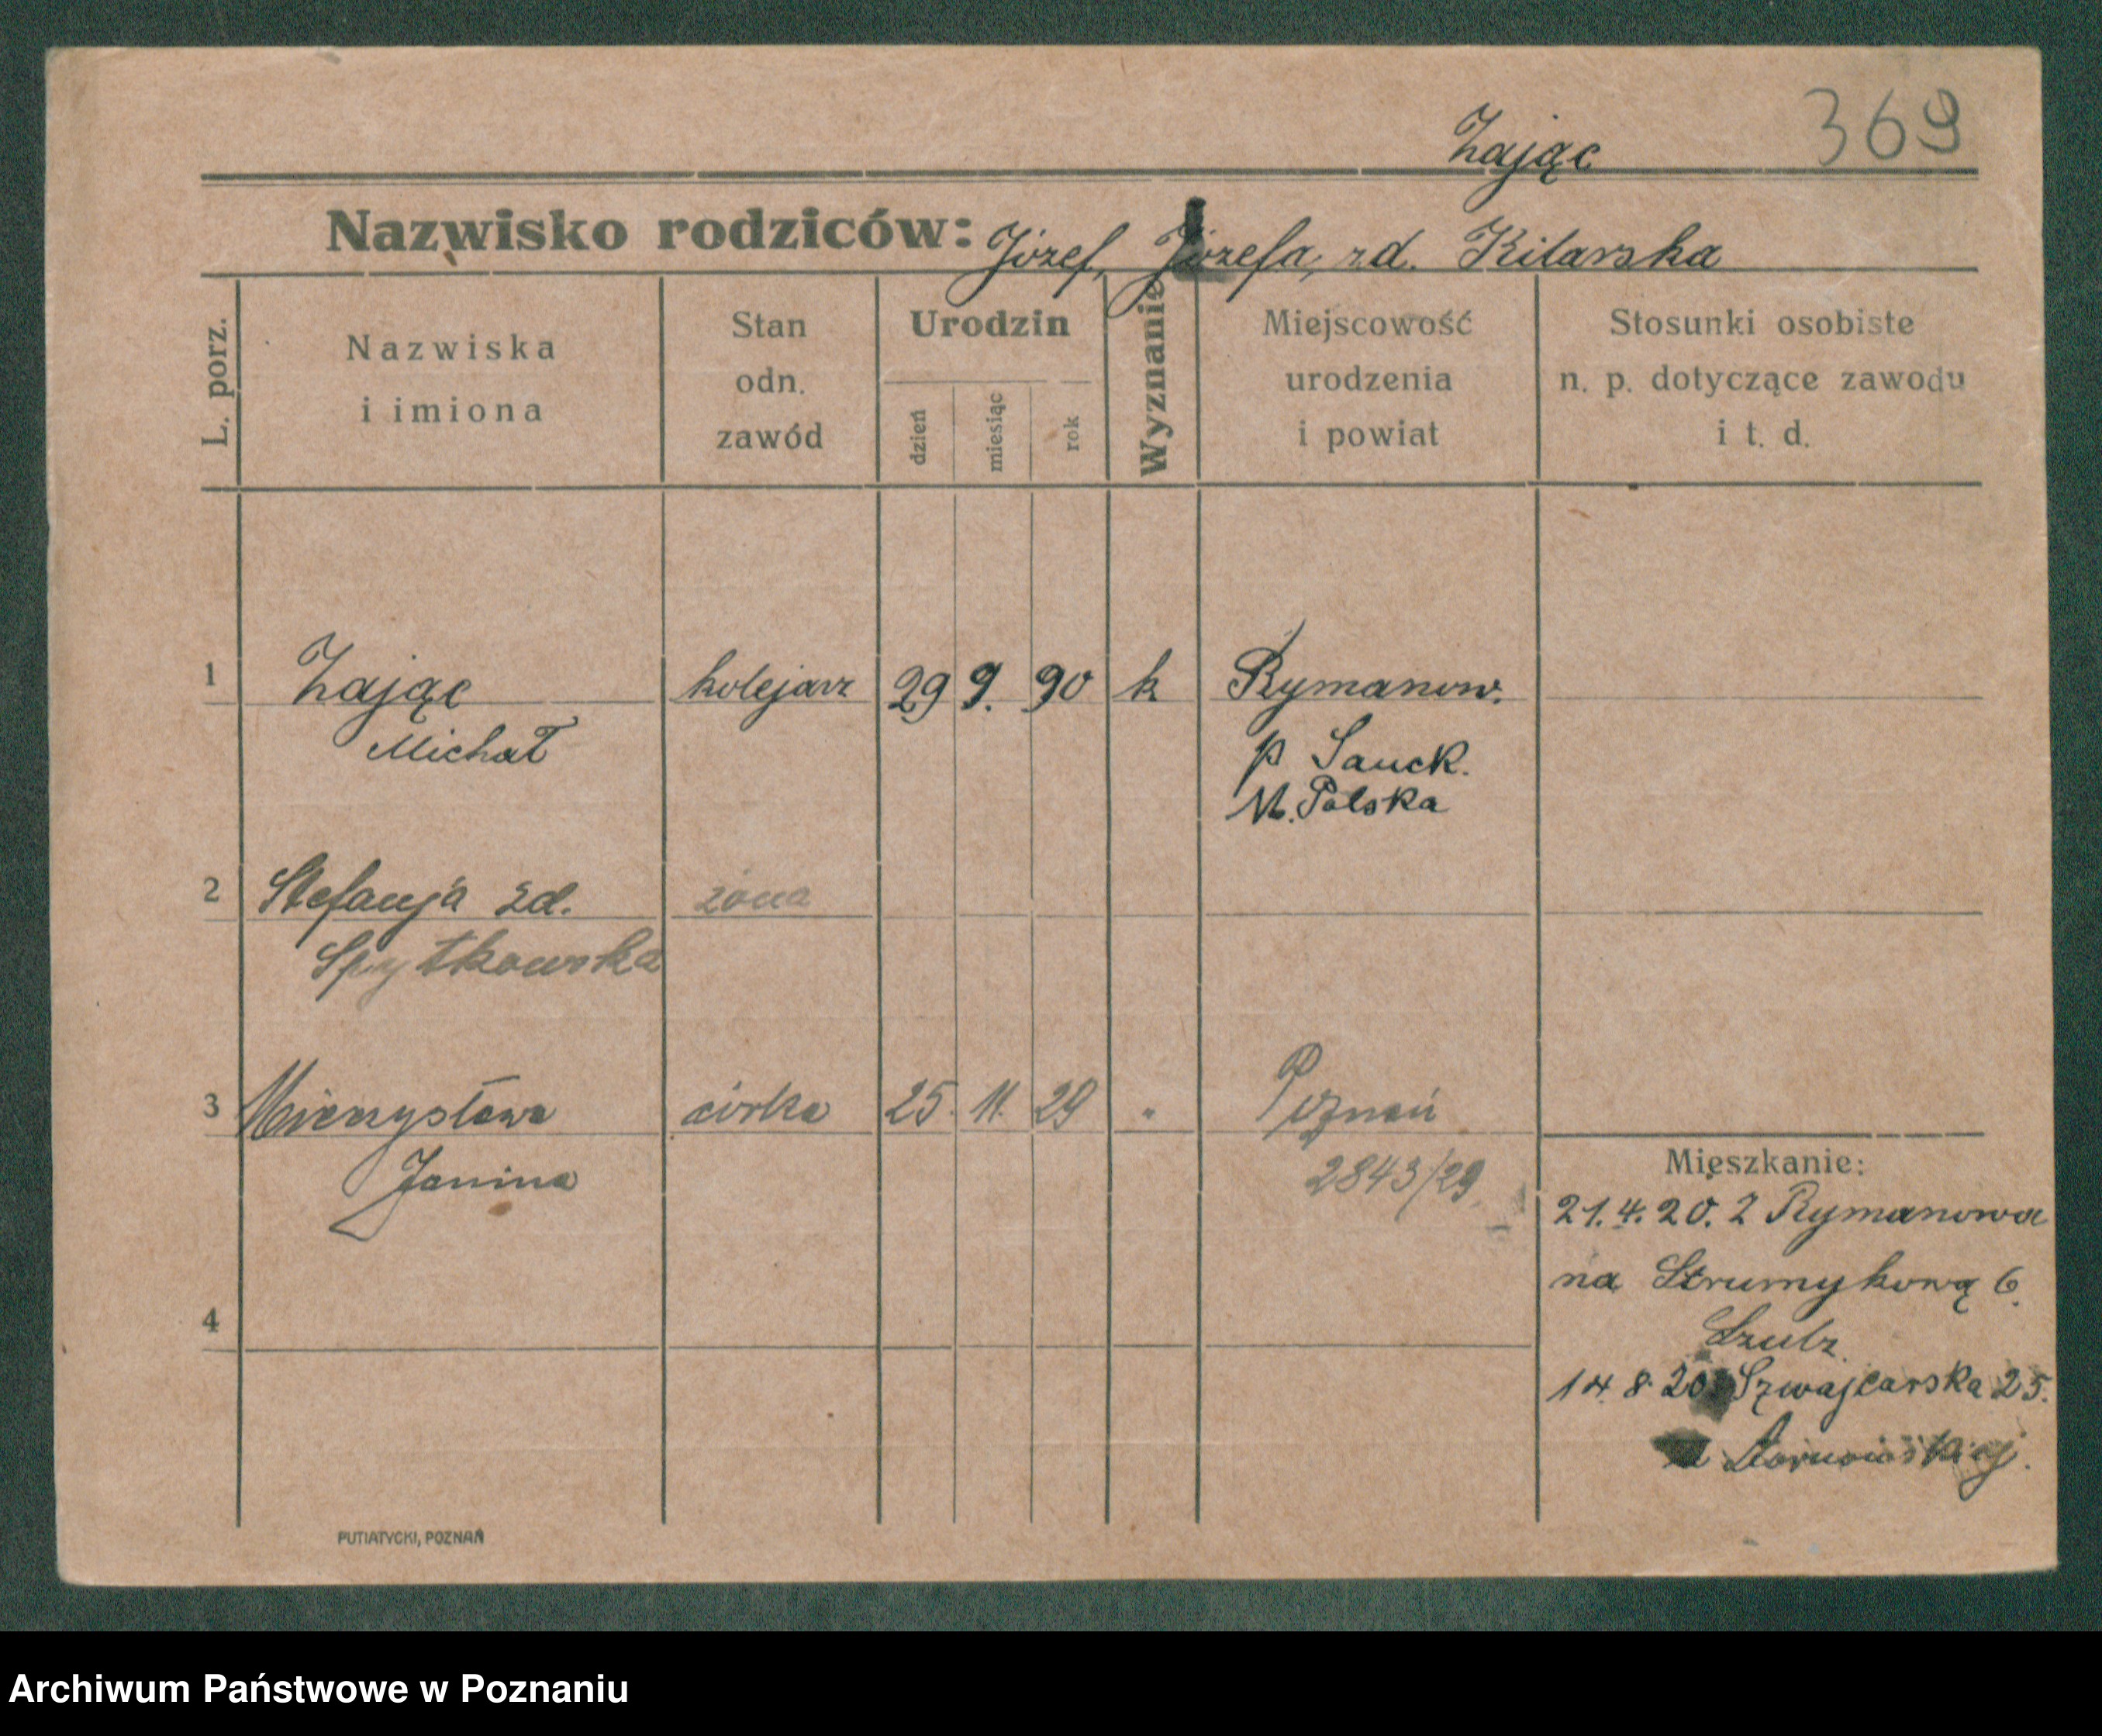 Zając 369
Nazwisko rodziców: Józef, Józefa, zd. Kilarska
L. porz.
Nazwiska
i imiona
Stan
odn.
zawód
Urodzin
dzień
miesiąc
rok
Wyznanie
Miejscowość
urodzenia
i powiat
Stosunki osobiste
n. p. dotyczące zawodu
i t. d.
1 Zając kolejarz 29 9. 90 k Rymanow.
Michał p Sanok.
M. Polska
2 Stefanja zd. żona
Spytkowska
3 Mieczysława córka 25. 11. 29 " Poznań
Janina 2843/29.
Mieszkanie:
21.4.20. Z Rymanowa
na Strumykową 6.
4
Szulz.
14 8 20 Szwajcarska 25.
PUTIATYCKI, POZNAŃ
Archiwum Państwowe w Poznaniu